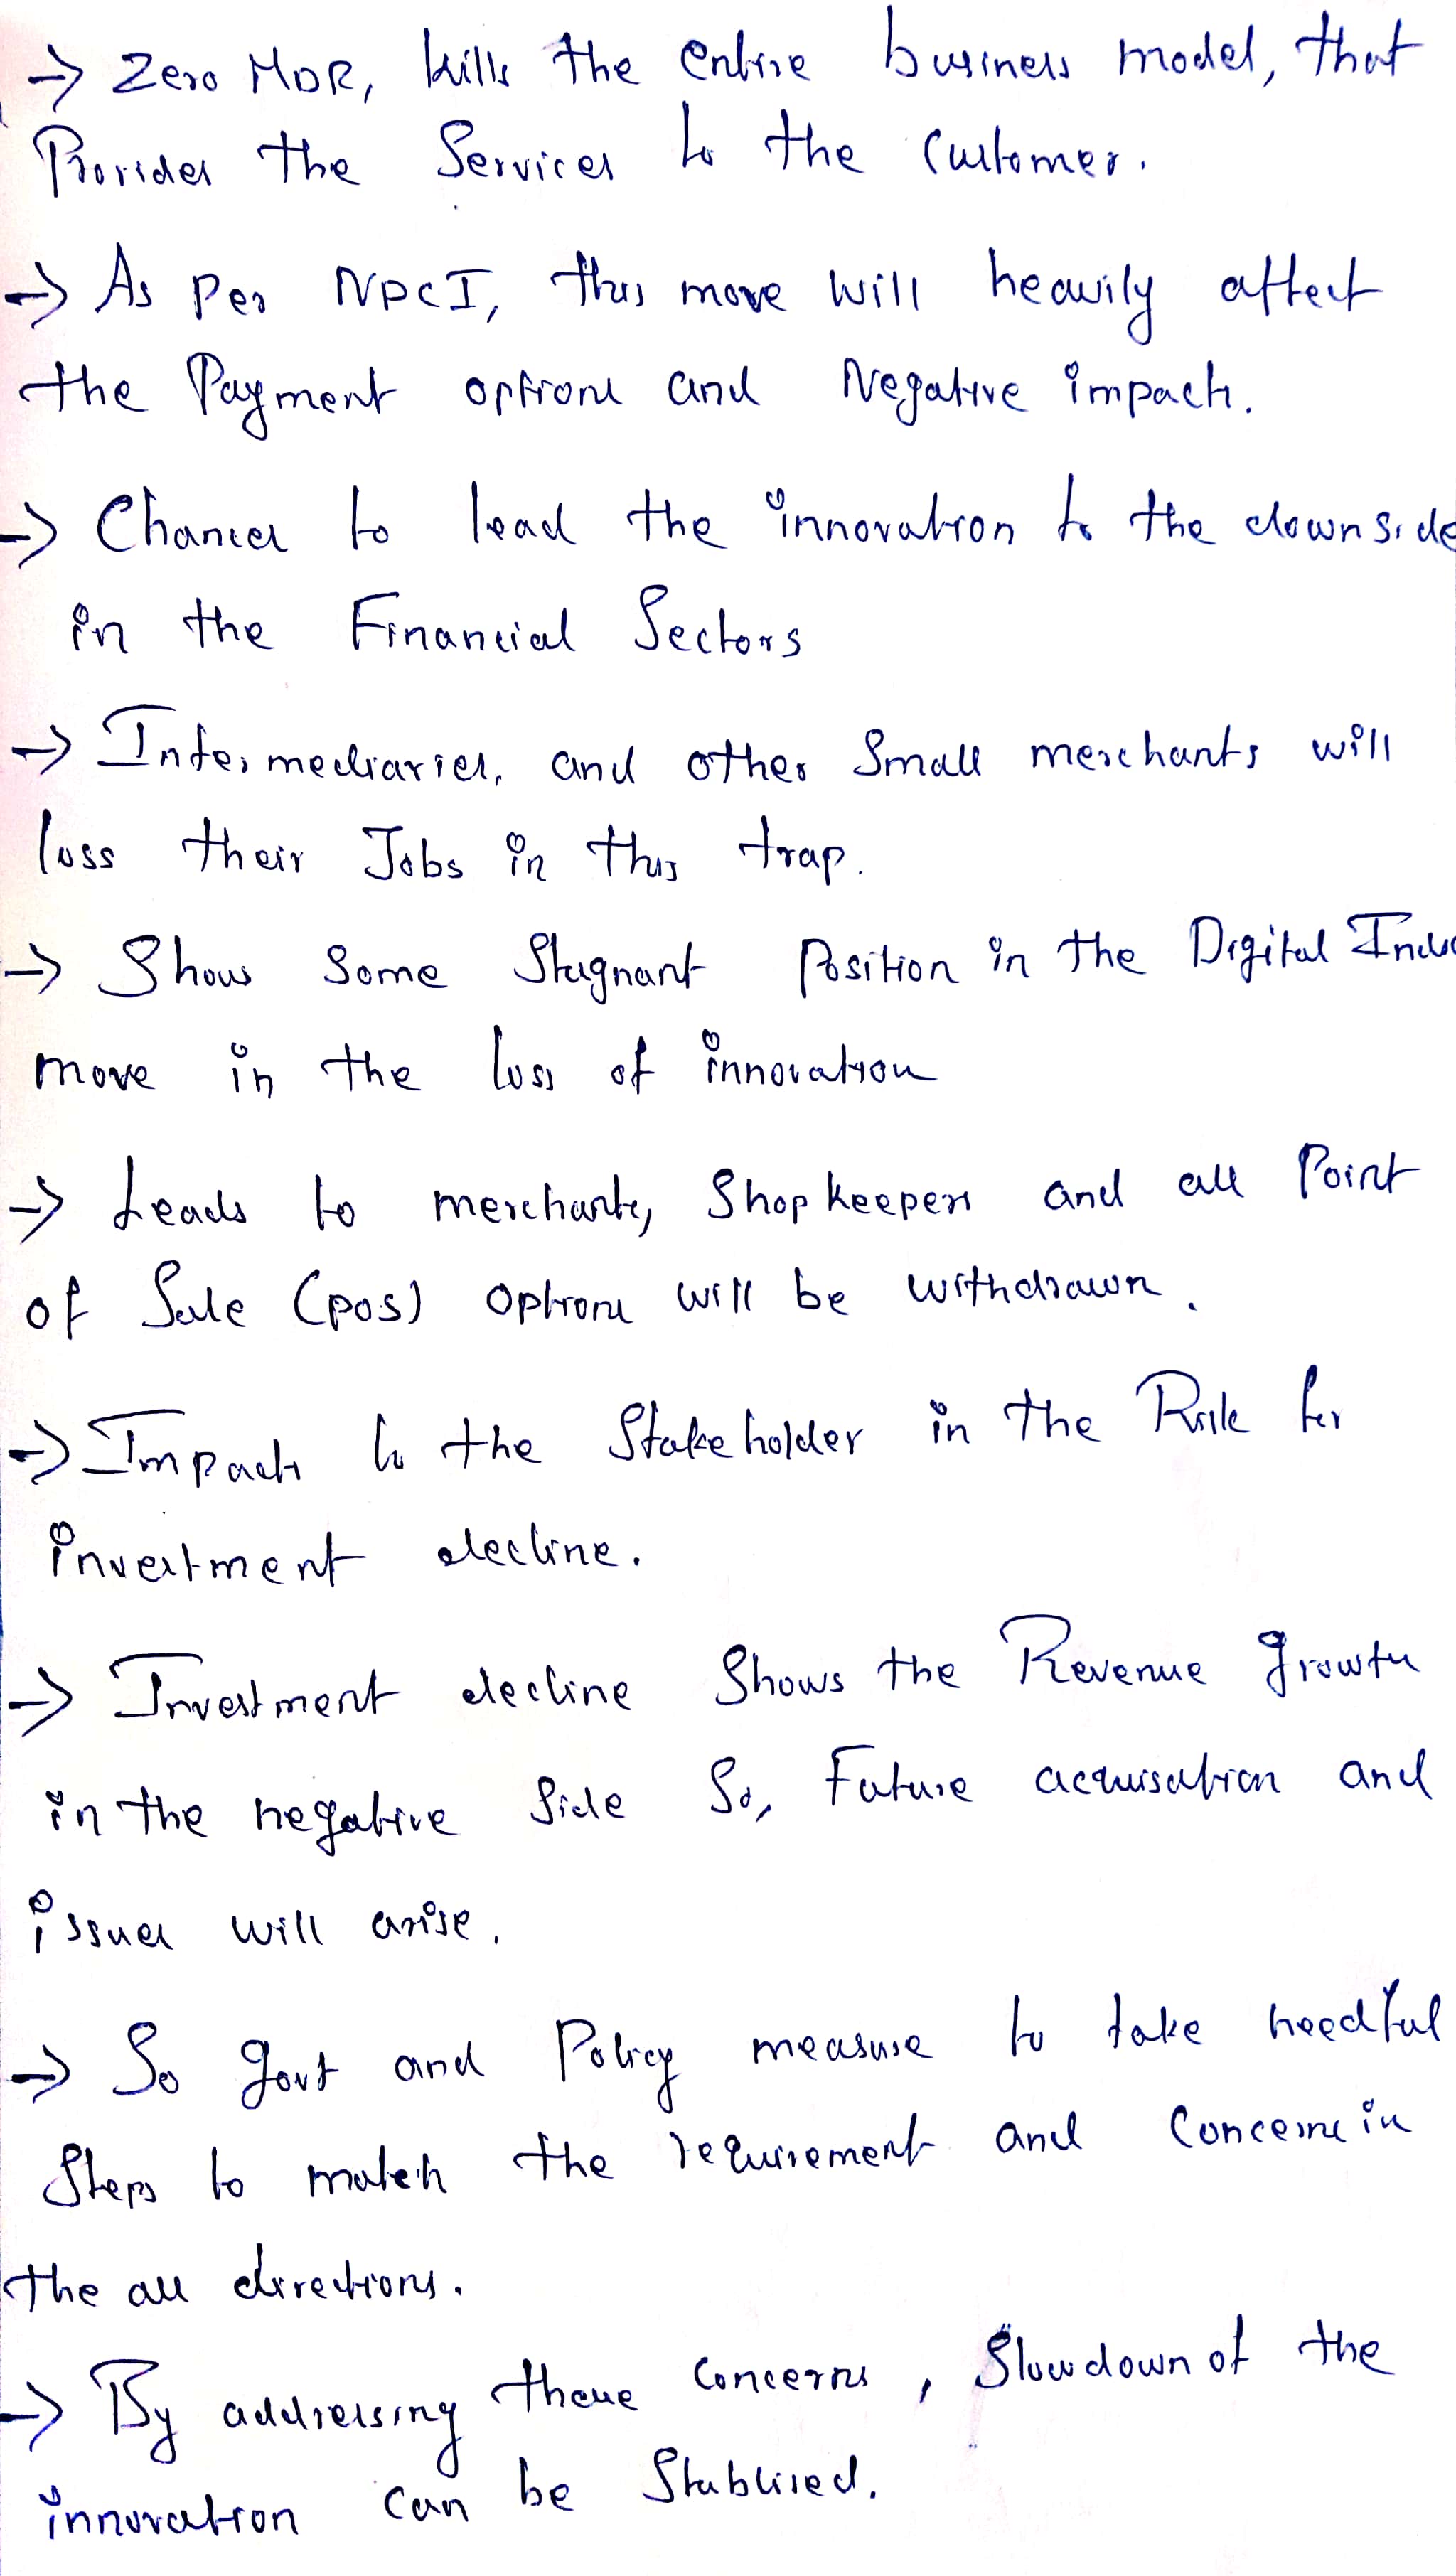 → Zero MDR, kills the entire business model, that
Provides the Services to the Customer.
→ As per NPCI, this move will heavily affect
the Payment options and Negative impact.
→ Chances to lead the innovation to the downside
in the Financial Sectors
→ Intermediaries, and other Small merchants will
loss their Jobs in this trap.
→ Show Some Stagnant Position in the Digital
move in the loss of innovation
→ Leads to merchants, Shopkeepers and all Point
of Sale (POS) options will be withdrawn.
→ Impact to the Stakeholder in the Risk for
investment decline.
→ Investment decline Shows the Revenue growth
in the negative Side So, Future acquisation and
issues will arise.
→ So govt and Policy measure to take needful
Steps to match the requirement and Concerns in
the all directions.
→ By addressing these Concerns, Slowdown of the
innovation can be Stablised.